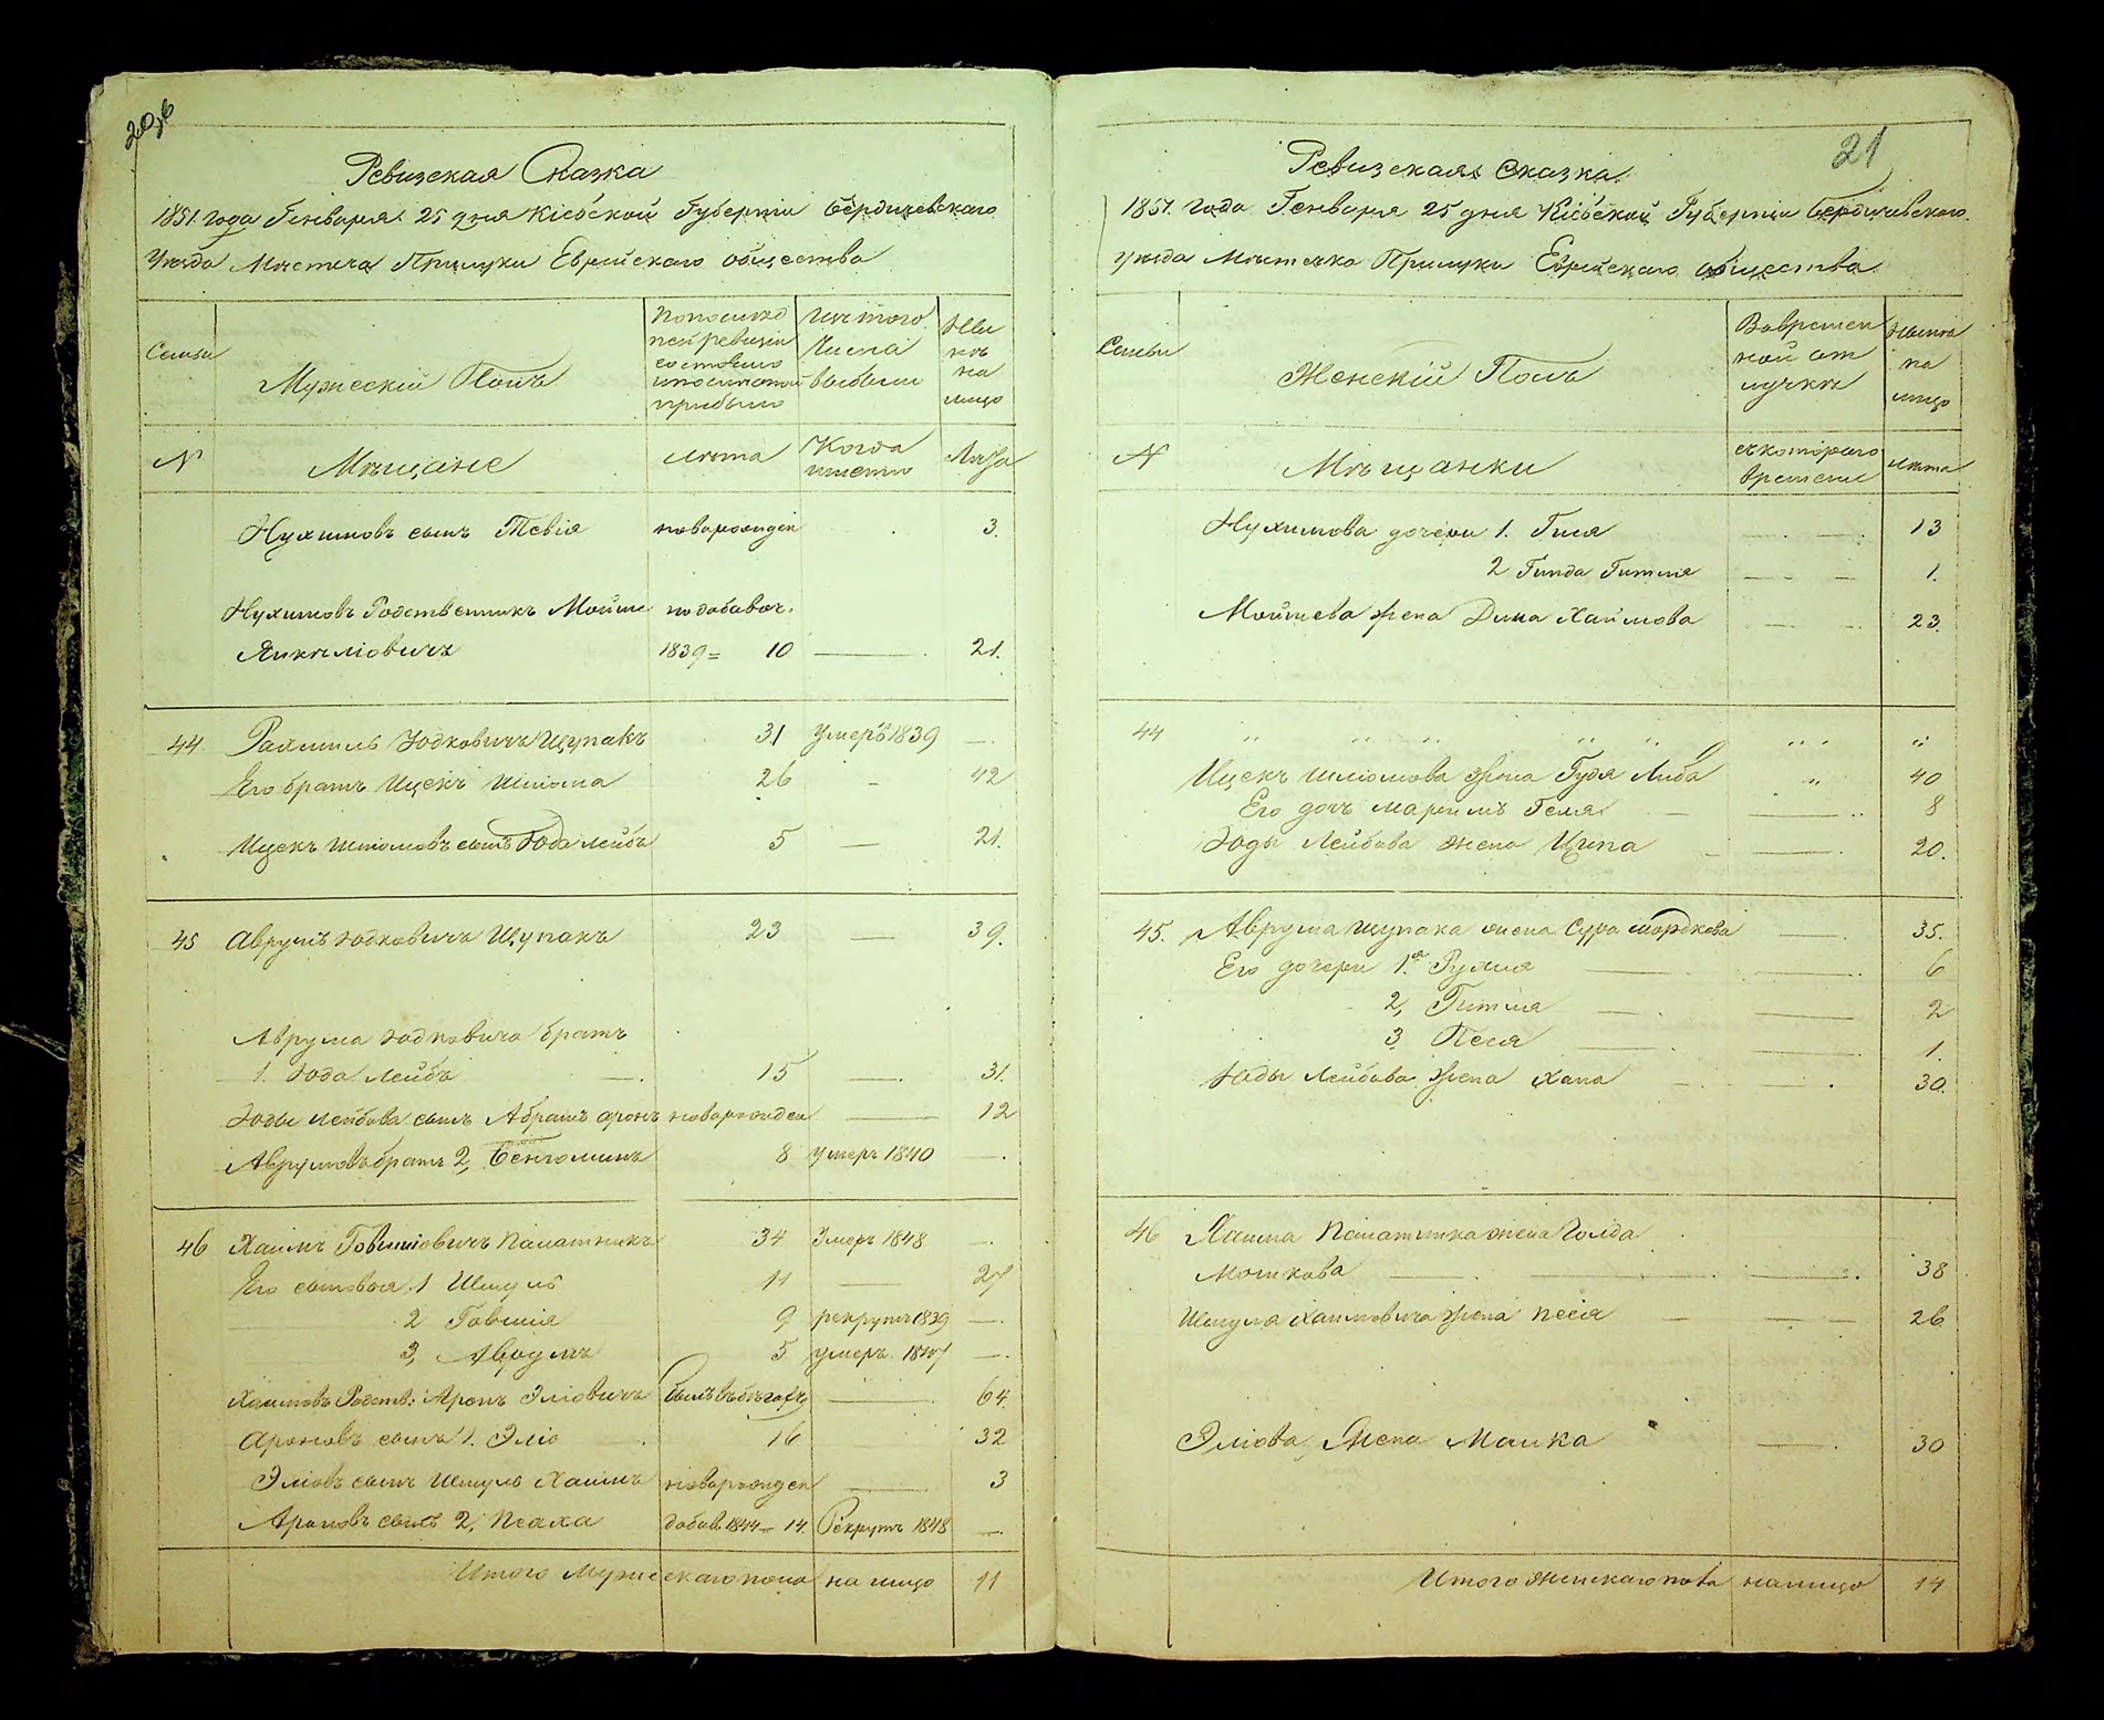 20,б
Ревизская Сказка
1851 года Генваря 25 дня Кіевской Губерніи Бердичевскаго
Уезда Местечка Прилуки Еврейскаго общества
Семьи
Мужескій Полъ
По последней ревизіи состояло и после оной прибыло
Изъ того числа выбыли
Ныне на лицо
N
Мещане
лета
Когда именно
Лета
Нухимовъ сынъ Тевія новарожден 3.
Нухимовъ Родственникъ Мойше по добавоч.
Янкеліовичъ 1839= 10 — 21.
44 Рахмиль Іодковичъ Щупакъ 31 умеръ 1839 —
Его братъ Ицекъ Шліома 26 - 42
Ицекъ Шліомовъ сынъ Іода лейба 5 — 21.
45 Аврумъ Іодковичъ Щупакъ 23 — 39.
Аврума Іодковича братъ
1. Іода Лейба —. 15 —. 31.
Іоды лейбова сынъ Абрамъ аронъ новарожден — 12
Аврумовъ братъ 2, Беніоминъ 8 умеръ 1840 —.
46 Хаимъ Говшіовичъ Палатникъ 34 Умеръ 1848 —.
Его сыновья 1 Шмуль 11 — 27
2 Говшія 9 рекрутъ 1839 —.
3, Аврумъ 5 умеръ 1847 —.
Хаимовъ Родств: Аронъ Эліовичъ былъ въ бегахъ — 64.
Ароновъ сынъ 1. Эліо 16 32
Эліовъ сынъ Шмуль Хаимъ новарожден — 3
Ароновъ сынъ 2, Псаха добав. 1844= 14. Рекрутъ 1848 —
Итого Мужескаго пола на лицо 11
21
Ревизская Сказка
1851 года Генваря 25 дня Кіевской Губерніи Бердичевскаго
уезда Местечка Прилуки Еврейскаго общества
Семьи
Женскій Полъ
Во временной отлучке
Ныне на лицо
N
Мещанки
съ котораго времени
лета
Нухимова дочери 1. Гися 13
2 Гинда Гитля 1.
Мойшева жена Дина Хаимова 23.
44
Ицекъ Шліомова жена Гудя Либа " 40
Его дочъ Маріимъ Геля — 8
Іоды Лейбова жена Ципа — 20.
45. Аврума щупака жена Сура мордкова — 35.
Его дочери 1.я Рухля — 6
2, Гитля — 2
3 Песя — 1.
Іоды Лейбова жена Хана — 30.
46 Хаима Палатника жена Голда
Мошкова — 38
Шмуля Хаимовича жена Песія — 26
Эліова Жена Малка — 30
Итого женскаго пола налицо 14